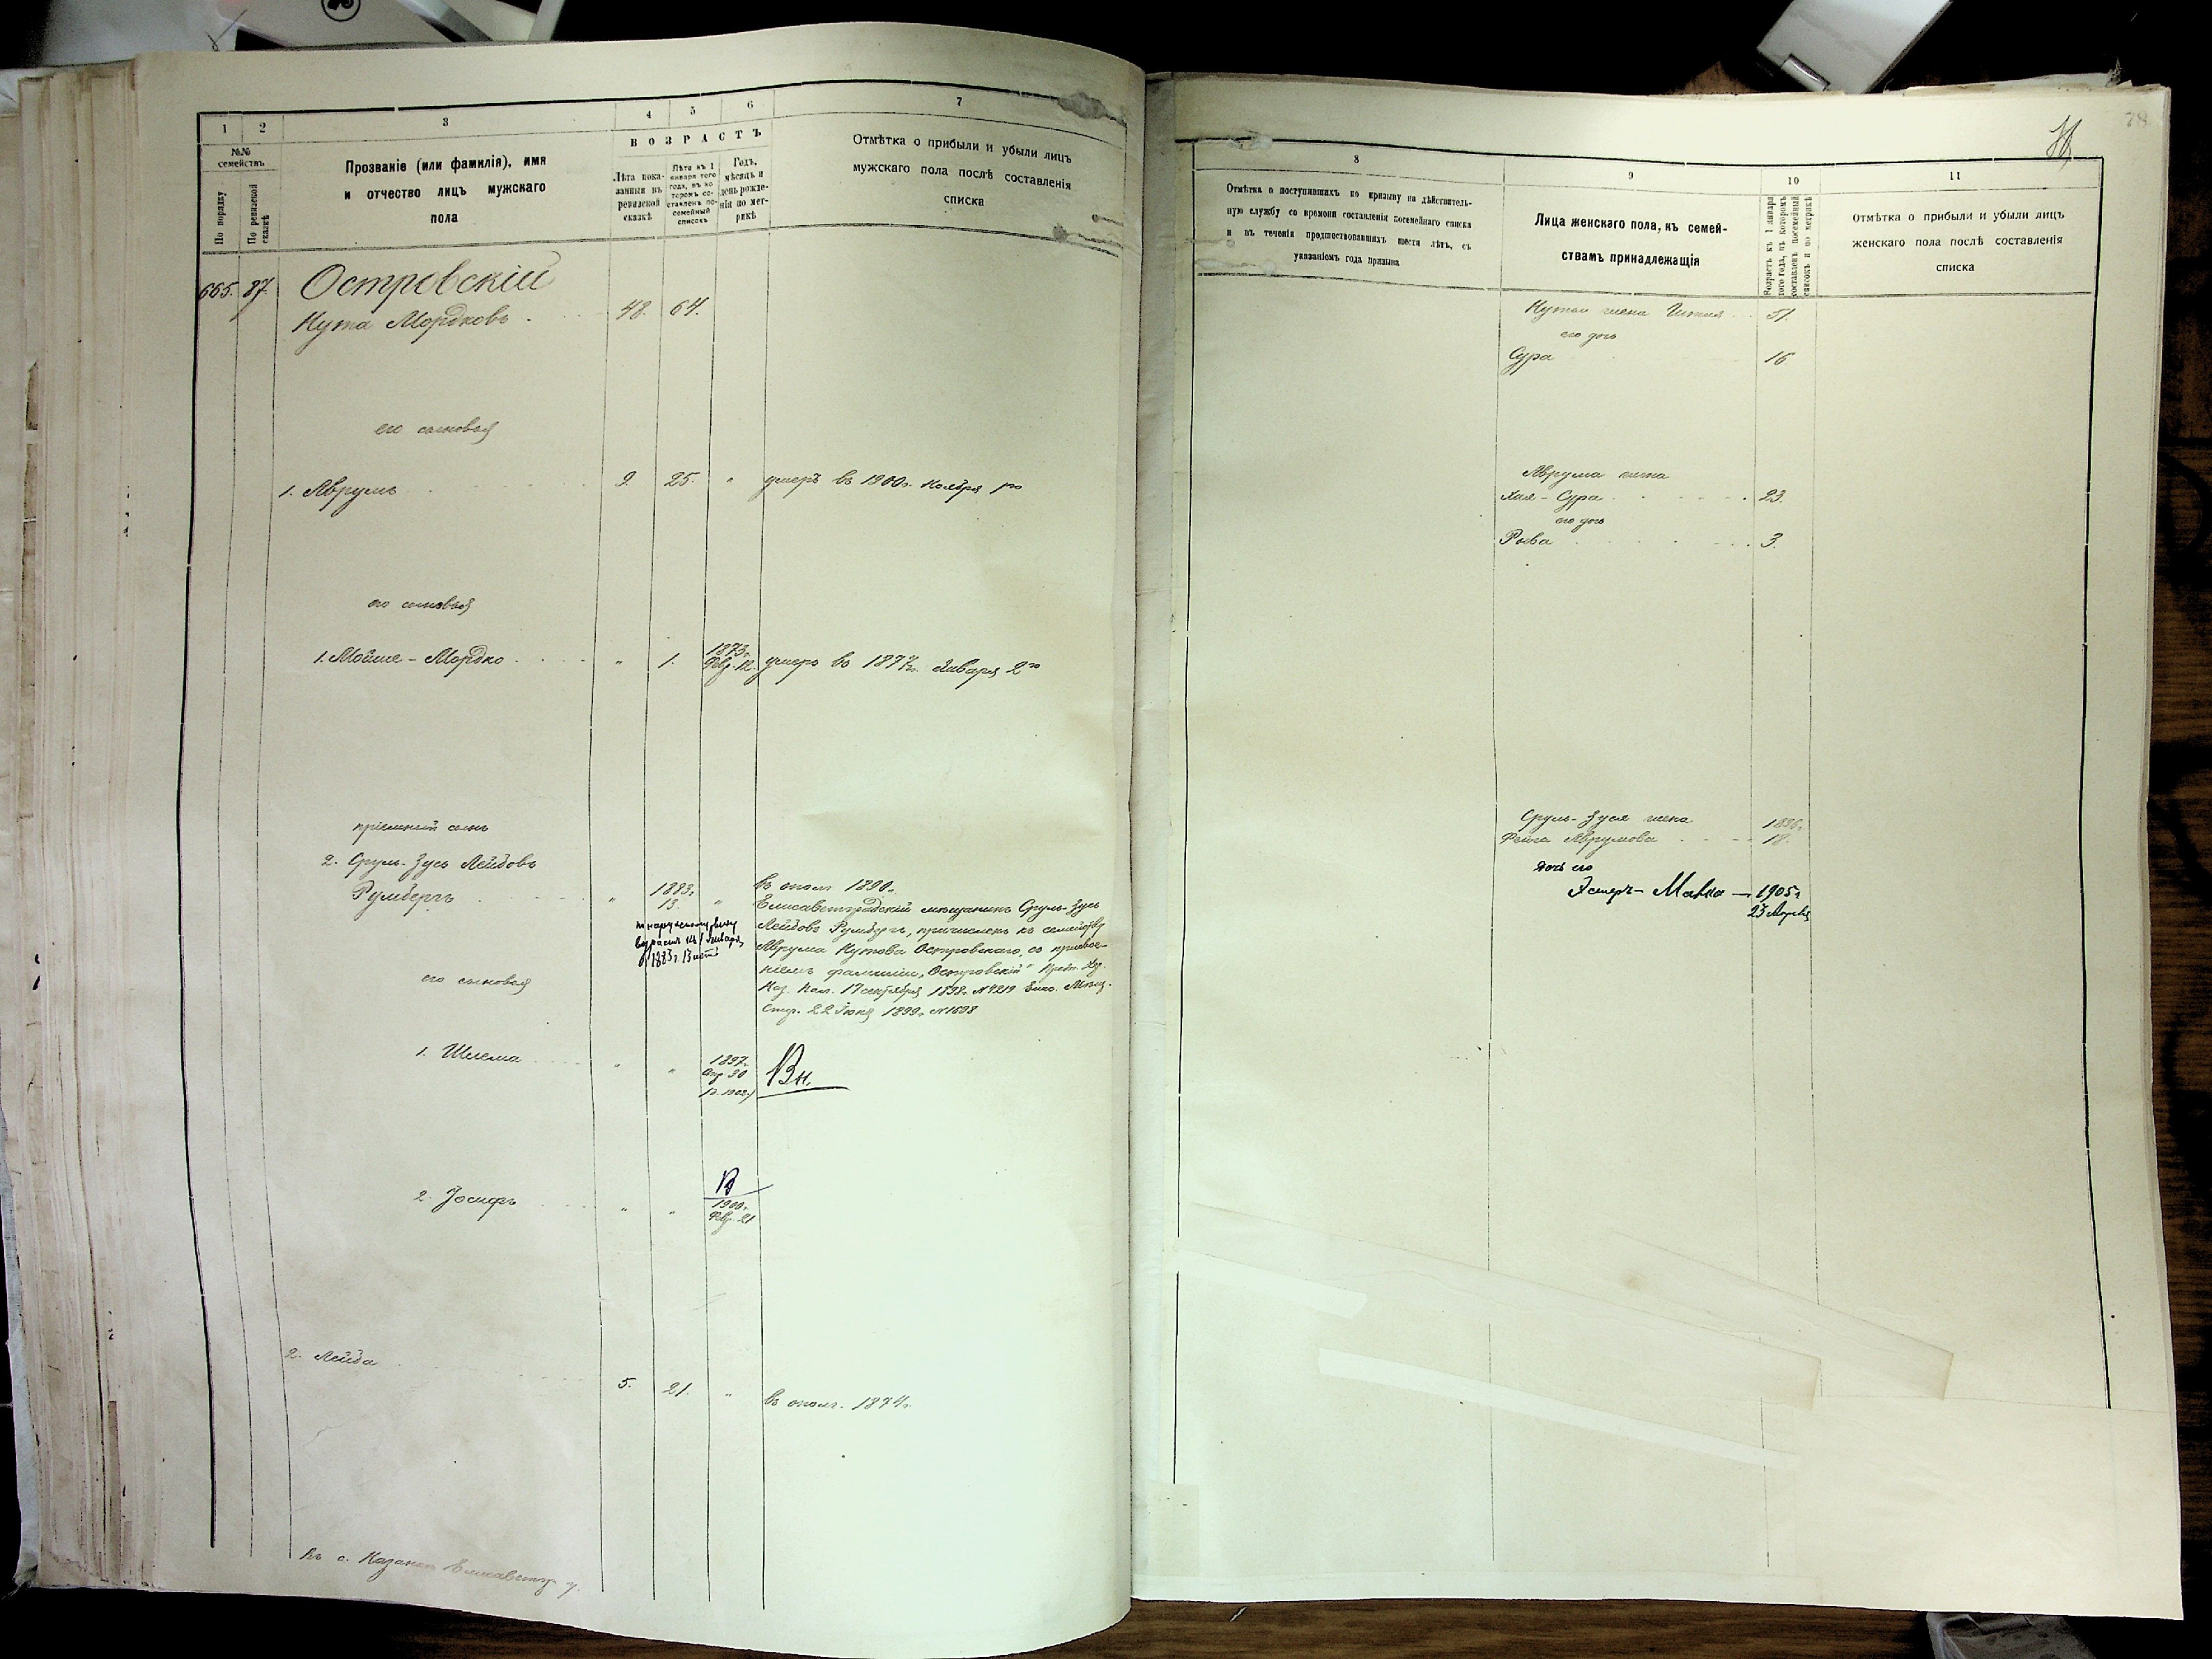 1
2
3
4
5
6
7
№№
семействъ
По порядку
По ревизской
сказкѣ
Прозваніе (или фамилія), имя
и отчество лицъ мужскаго
пола
ВОЗРАСТЪ
Лѣта пока-
занныя въ
ревизской
сказкѣ
Лѣта къ 1
января того
года, въ ко
торомъ со-
ставленъ по-
семейный
списокъ
Годъ,
мѣсяцъ и
день рожде-
нія по мет-
рикѣ
Отмѣтка о прибыли и убыли лицъ
мужскаго пола послѣ составленія
списка
665. 87. Островскій
Кута Мордковъ 48. 64.
его сыновья
1. Аврумъ 9. 25. " умеръ въ 1900г. Ноября
его сыновья
1. Мойше-Мордко " 1. 1873г.
Февр. 12. умеръ въ Января 2го
пріемный сынъ
2. Сруль-Зусь Лейбовъ
Румбергъ " 1883г.
13. "
по наружному виду
возрастъ къ 1 Января
1883г. 13 лѣтъ
въ 1890г.
Елисаветградскій мѣщанинъ Сруль-Зусь
Лейбовъ Румбергъ, причисленъ къ семейству
Аврума Кутова Островскаго, съ присвое-
ніемъ фамиліи „Островскій"
Каз. Пал. 17 сентября 1898г. №4219
22 Іюня 1899г. №1698
его сыновья
1. Шлема " " 1897г.
Апр 30
Вн.
2. Іосифъ " " 1900г.
Февр. 21
2. Лейба 5. 21. " въ 1874г.
Въ с. Елисаветгр у.
8
9
10
11
Отмѣтка о поступившихъ по призыву на дѣйствитель-
ную службу со времени составленія посемейнаго списка
и въ теченія предшествовавшихъ шести лѣтъ, съ
указаніемъ года призыва
Лица женскаго пола, къ семей-
ствамъ принадлежащія
Возрастъ къ 1 января
того года, въ которомъ
составленъ посемейный
списокъ и по метрикѣ
Отмѣтка о прибыли и убыли лицъ
женскаго пола послѣ составленія
списка
жена 51.
его дочь
Сура 16
Аврума жена
Хая-Сура 23.
его дочь
3.
Сруль-Зуся жена 1896г.
Фейга Аврумова 18.
дочь его
Эстеръ-Малка — 1905г.
23 Апрѣля